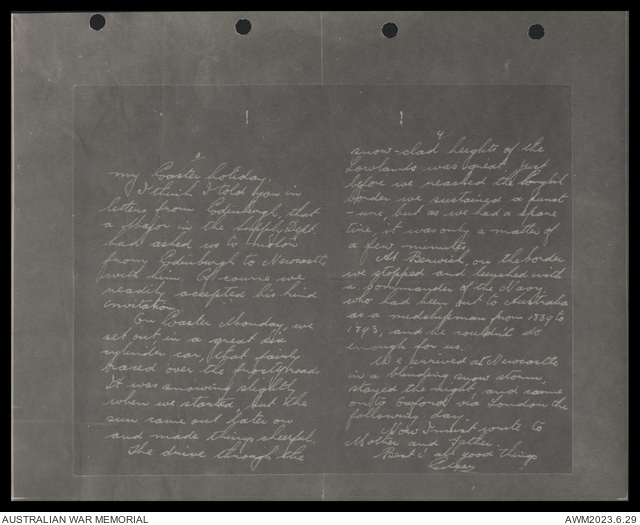 3
my Easter holiday.
I think I told you in
letters from Edinburgh, that
a Major in the Supply Dept.
had asked us to motor
from Edinburgh to Newcastle
with him. Of course we
readily accepted his kind
invitation.
On Easter Monday, we
set out in a great six
cylinder car, that fairly
over the frosty roads
It was snowing slightly
when we started, but the
sun came out later on
and made things cheerful.
The drive through the
4
snow-clad heights of the
Lowlands was great. Just
before we reached the English
border we sustained a punct
-ure, but as we had a spare
tire, it was only a matter of
a few minutes.
At Berwick, on the border
we stopped and lunched with
a Commander of the Navy
who had been out to Australia
as a midshipman from 1889 to
1893, and he couldn't do
enough for us.
We arrived at Newcastle
in a blinding snow storm,
stayed the night and came
onto Oxford via London the
following day.
Now I must write to
Mother and Father.
Best of all good things
AUSTRALIAN WAR MEMORIAL
AWM2023.6.29